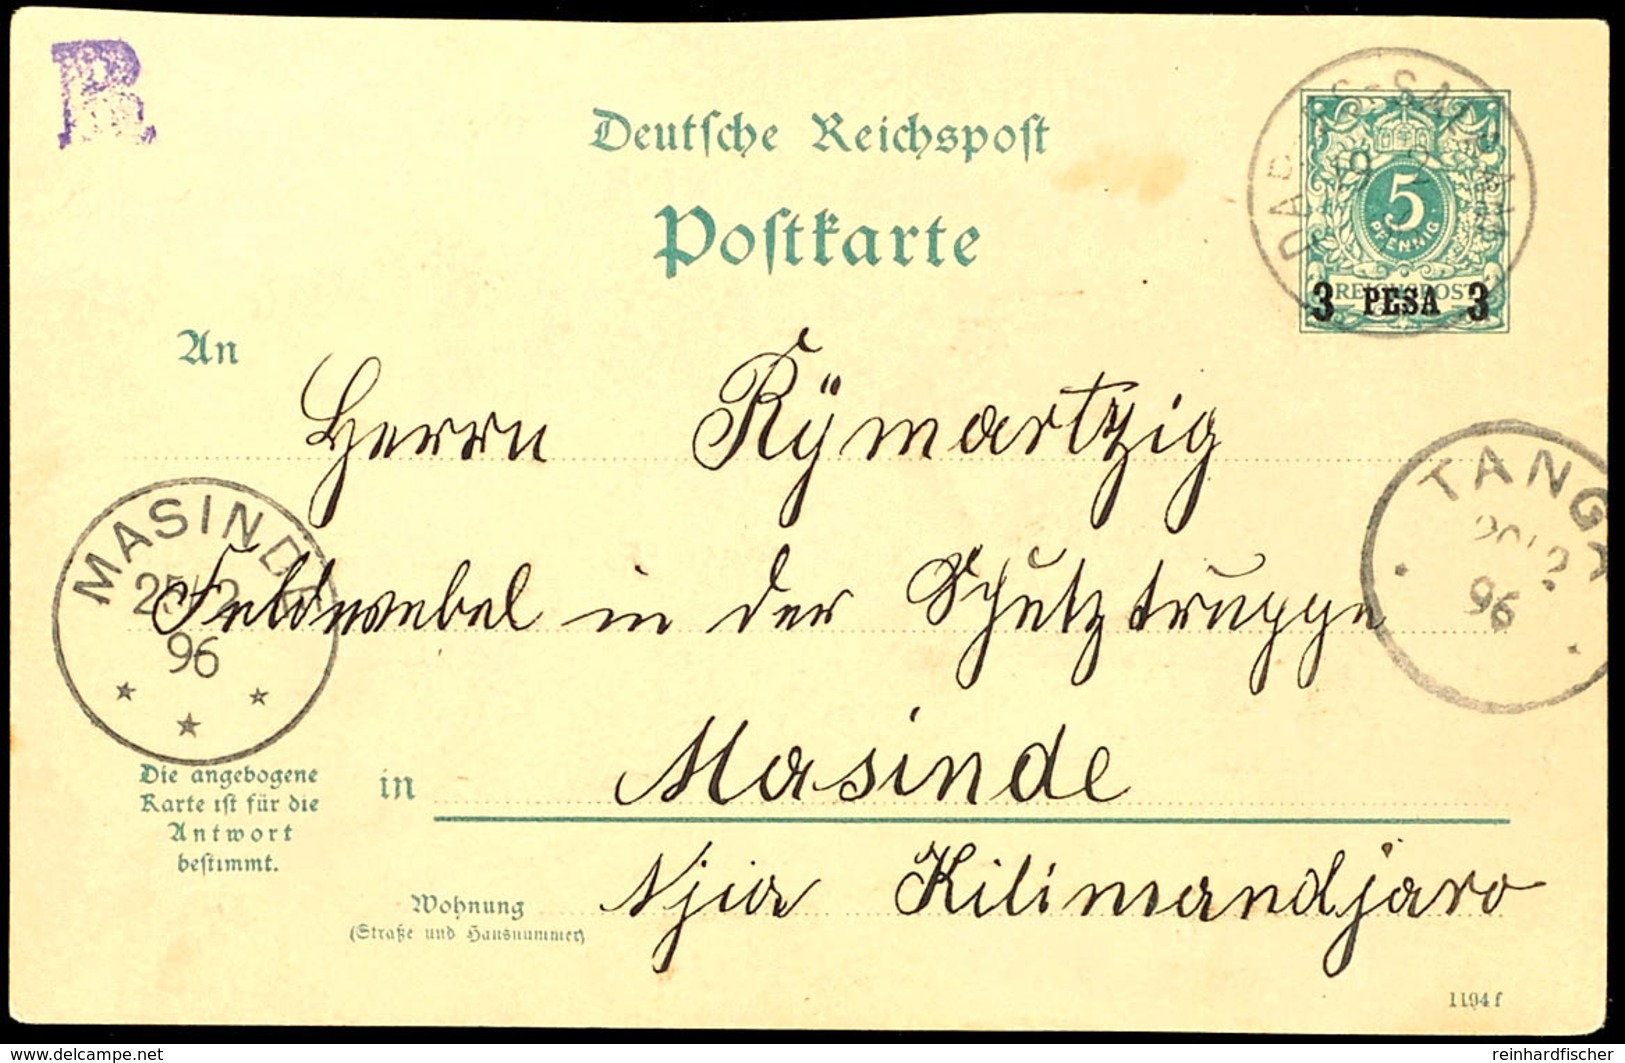 R
Deutsche Reichspost
Postkarte
DAR-ES-SALAAM
19 2
5
PFENNIG
REICHSPOST
3 PESA 3
An
Herrn Rÿmartzig
TANGA
20/2
96
MASINDE
25/2
96
Feldwebel in der Schutztruppe
Die angebogene
Karte ist für die
Antwort
bestimmt.
in Masinde
Njia Kilimandjaro
Wohnung
(Straße und Hausnummer)
1194 f
www.delcampe.net
reinhardfischer